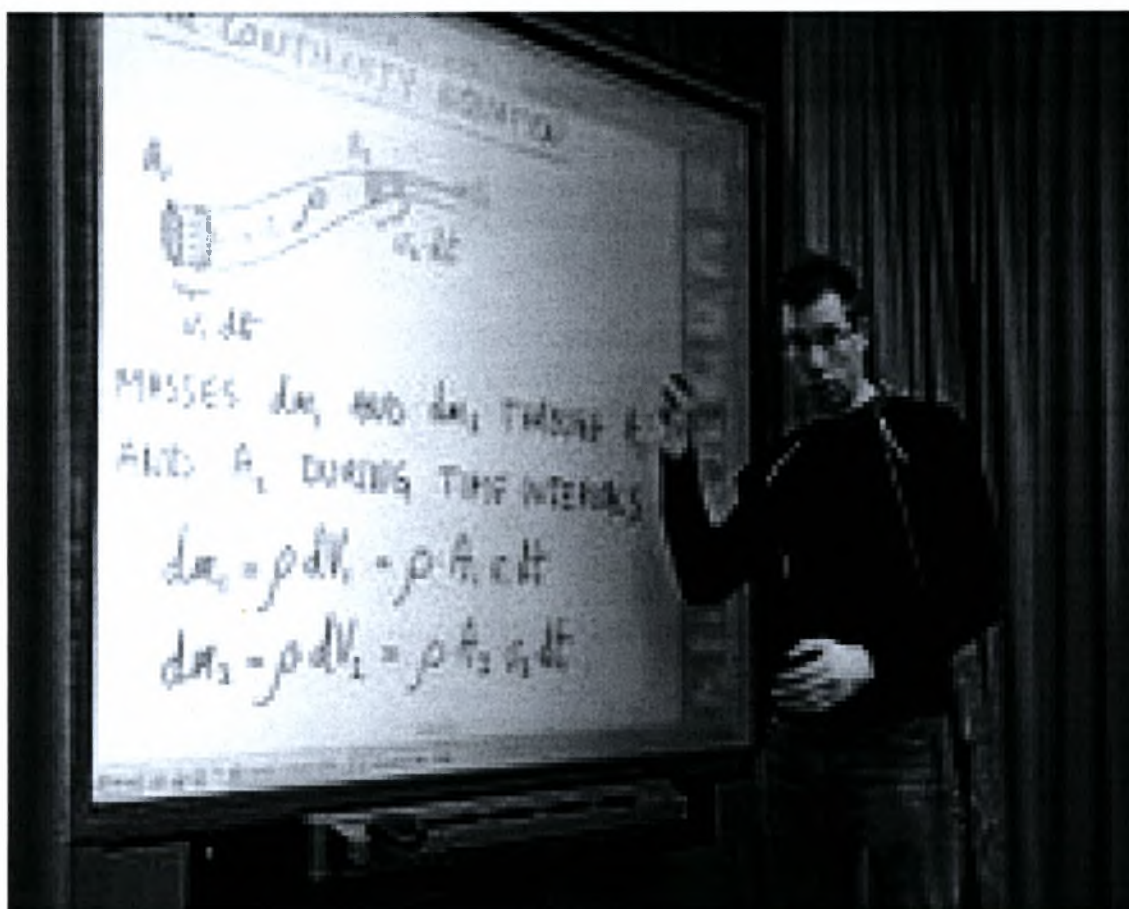 THE CONTINUITY EQUATION
A₁
A₂
ρ
v₂ dt
v₁ dt
MASSES dm₁ AND dm₂
AND A₂ DURING TIME
dm₁ = ρ dV₁ = ρ A₁ v dt
dm₂ = ρ dV₂ = ρ A₂ v₂ dt